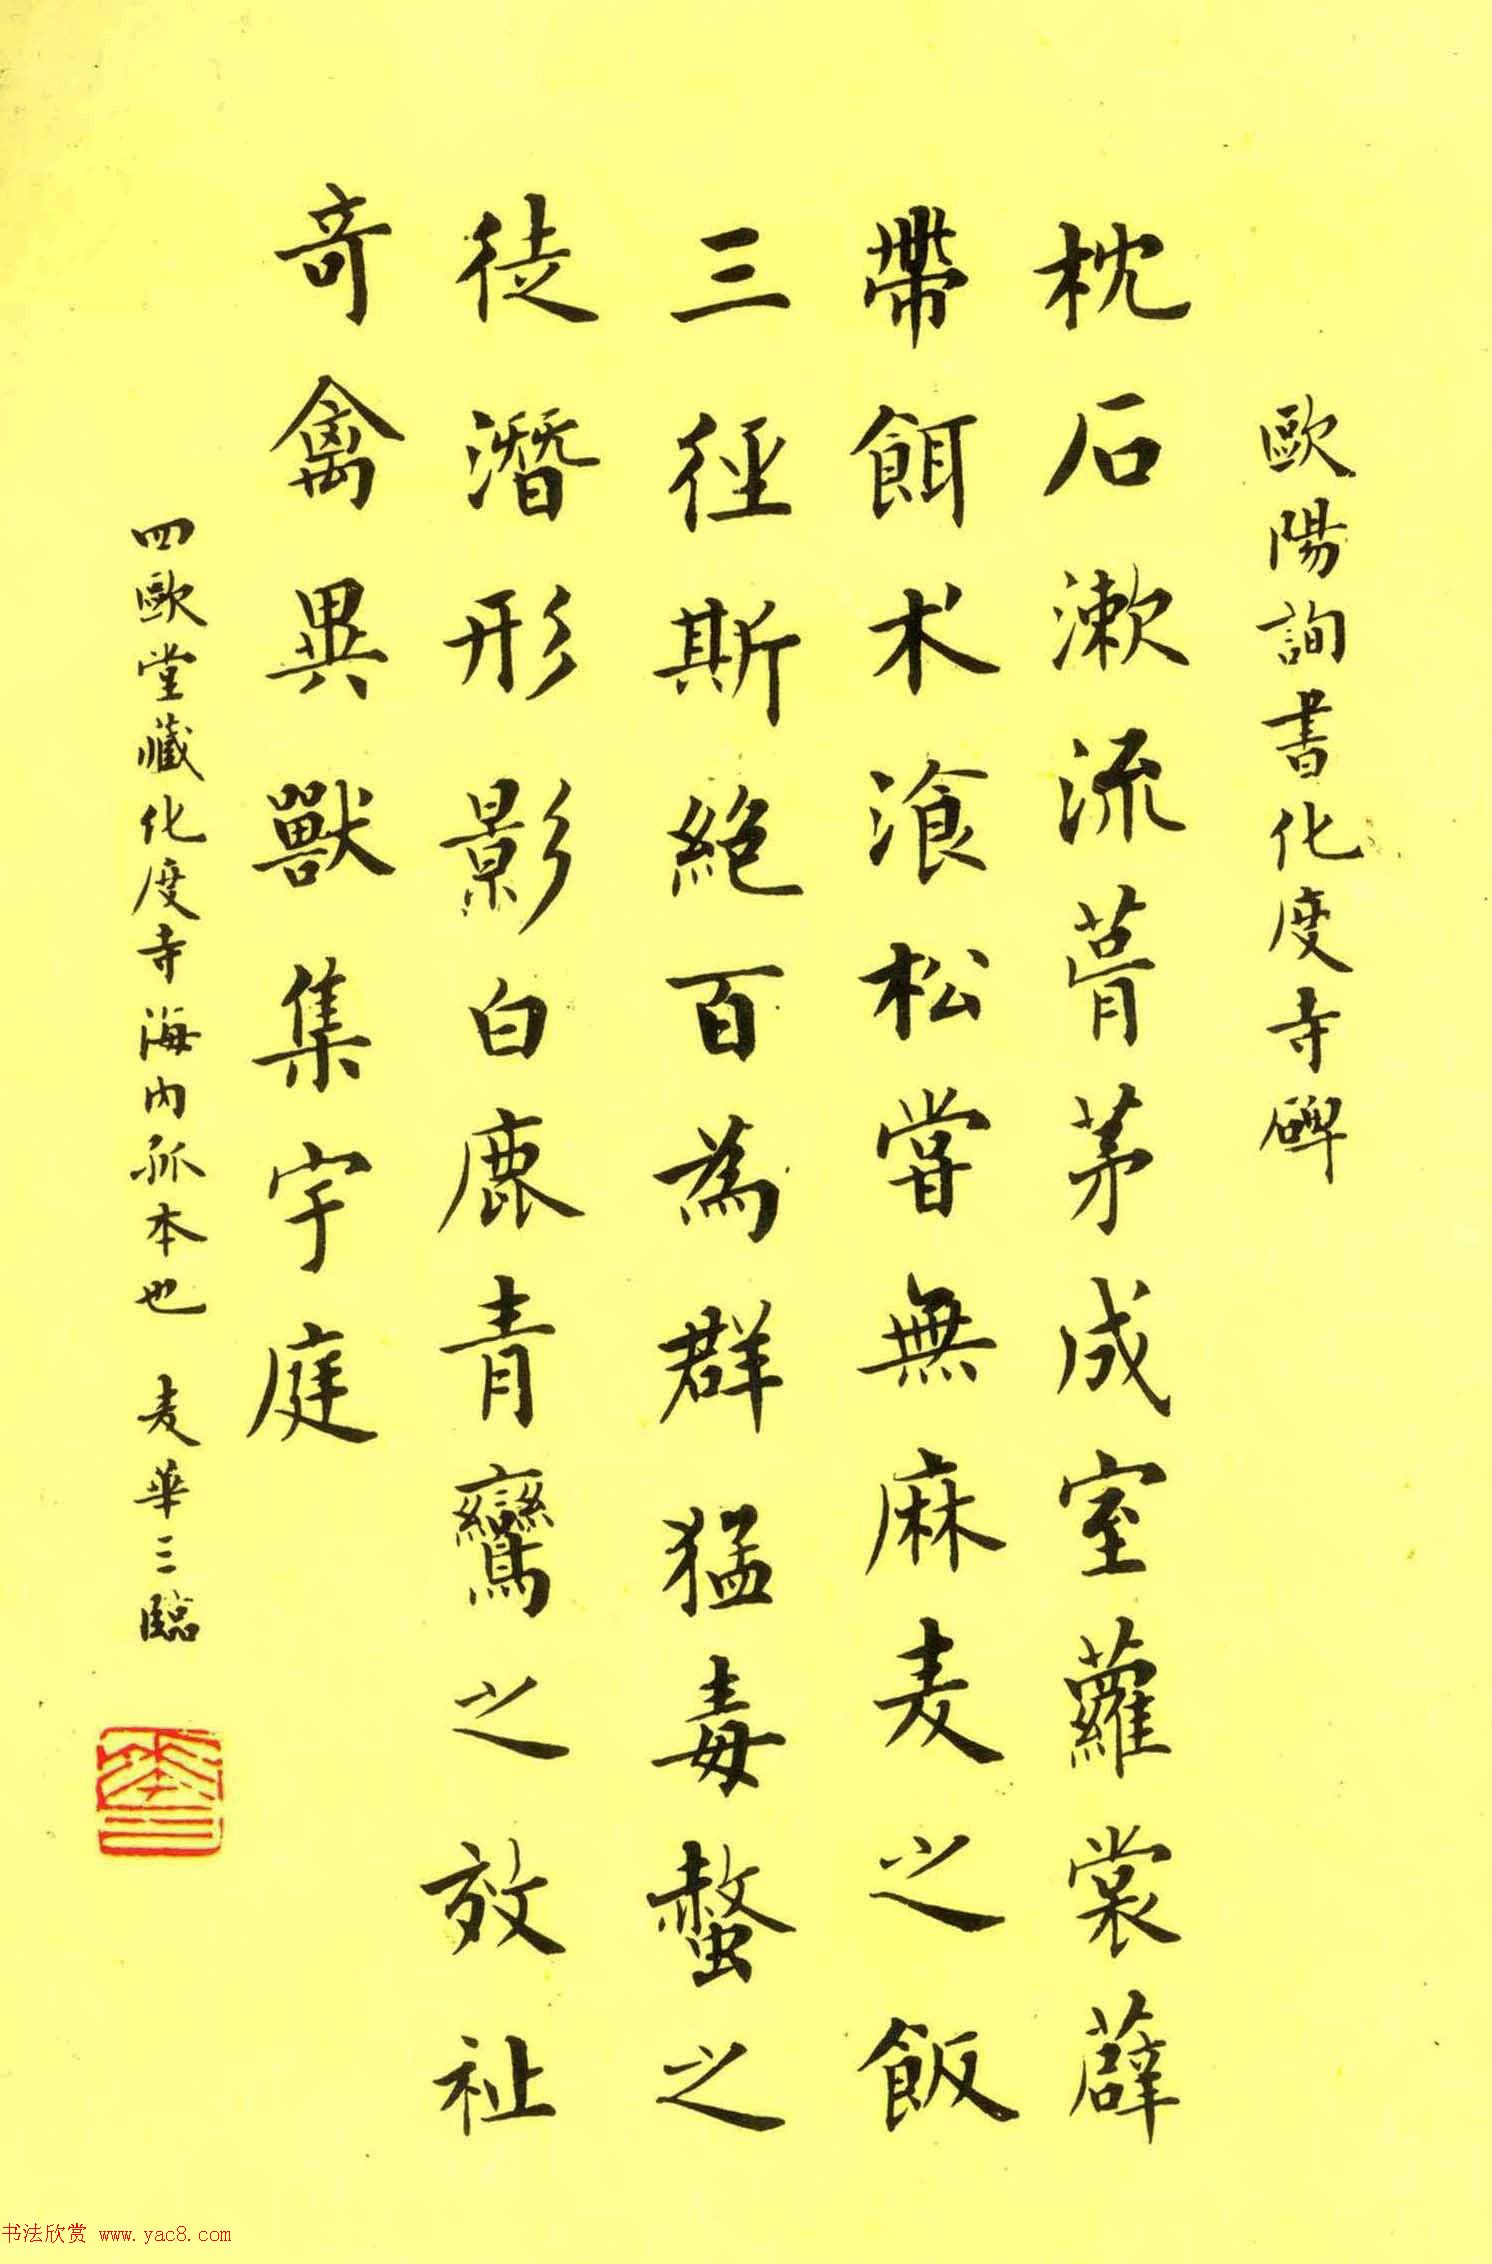 歐陽詢書化度寺碑
枕石漱流葺茅成室蘿裳薜
帶餌术飡松嘗無麻麦之飯
三徑斯絕百為群猛毒螫之
徒潛形影白鹿青鸞之效祉
奇禽異獸集宇庭
四歐堂藏化度寺海內孤本也 麦華三臨
華三
书法欣赏 www.yac8.com